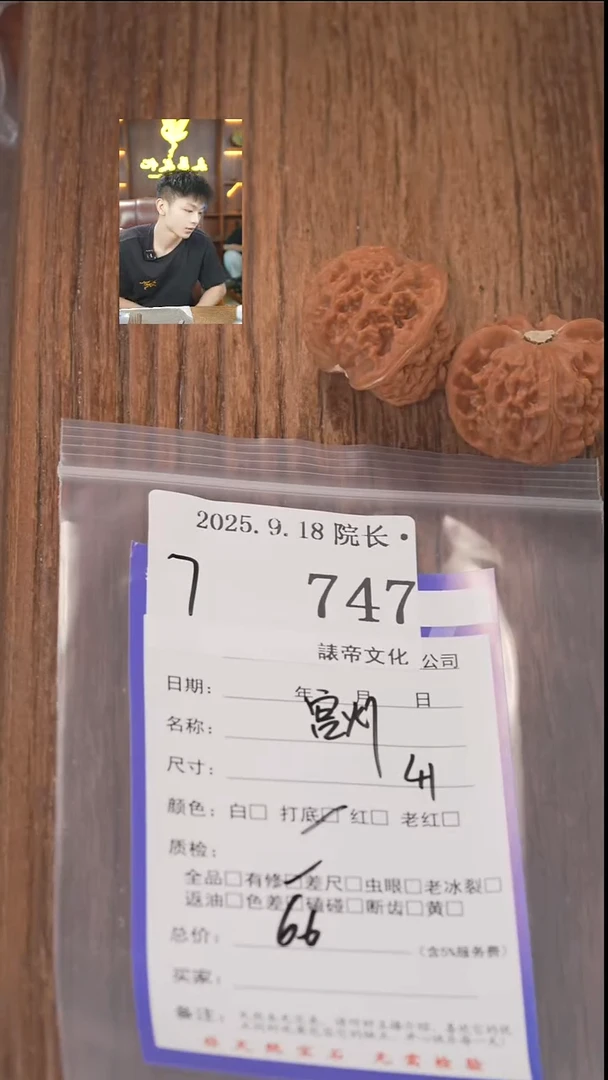 2025.9.18 院长·
7 747
諘帝文化 公司
日期： 年 月 日
名称： 宫灯
尺寸： 41
颜色：白□ 打底□ 红□ 老红□
质检：
全品□有修□差尺□虫眼□老冰裂□
返油□色差□磕碰□断齿□黄□
总价： 66 （含5%服务费）
买家：
备注：